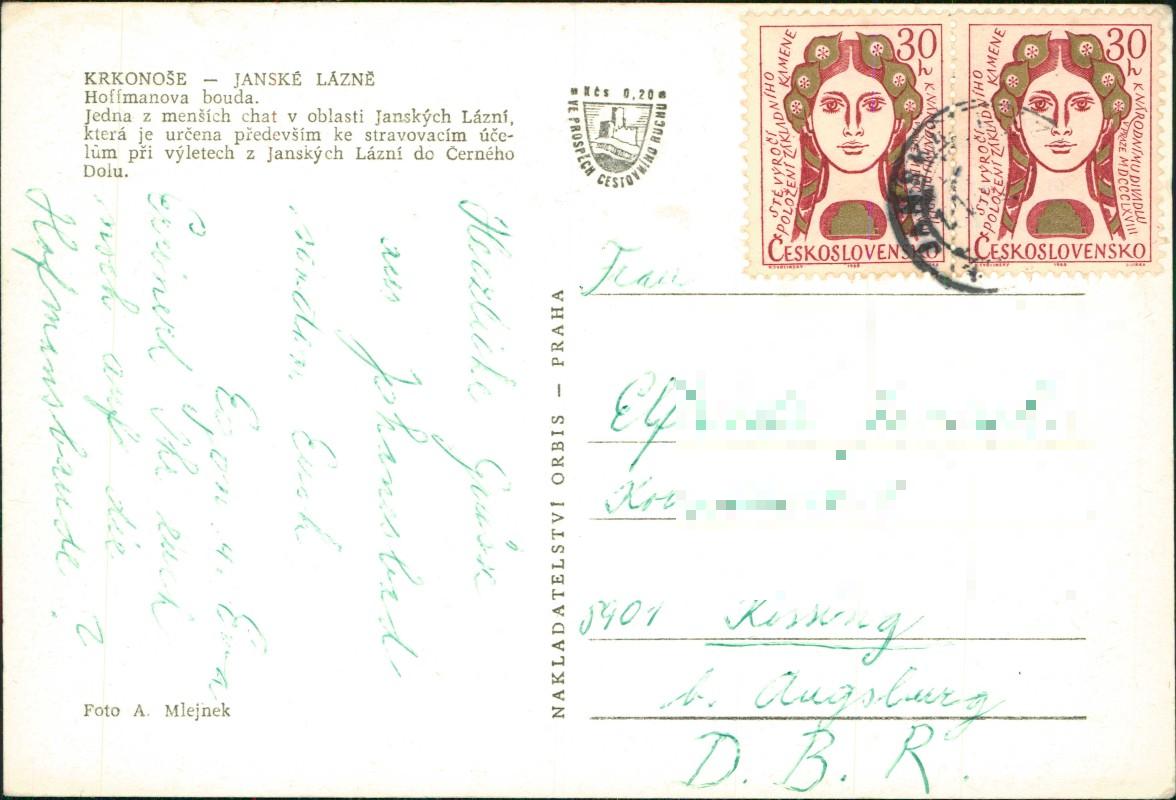 KRKONOŠE — JANSKÉ LÁZNĚ
Hoffmanova bouda.
Jedna z menších chat v oblasti Janských Lázní,
která je určena především ke stravovacím úče-
lům při výletech z Janských Lázní do Černého
Dolu.
Herzliche Grüße
aus Johannesbad
senden Euch
Egon u. Eva
Erinnert Ihr euch
noch auf die
Hofmansbaude?
Foto A. Mlejnek
NAKLADATELSTVÍ ORBIS — PRAHA
Kčs 0,20
VE PROSPĚCH CESTOVNÍHO RUCHU
30 h
STÉ VÝROČÍ
POLOŽENÍ ZÁKLADNÍHO KAMENE
K NÁRODNÍMU DIVADLU
ČESKOSLOVENSKO
30 h
STÉ VÝROČÍ
POLOŽENÍ ZÁKLADNÍHO KAMENE
K NÁRODNÍMU DIVADLU
V PRAZE MDCCCLXVIII
ČESKOSLOVENSKO
Frau
8901 Kissing
b. Augsburg
D. B. R.